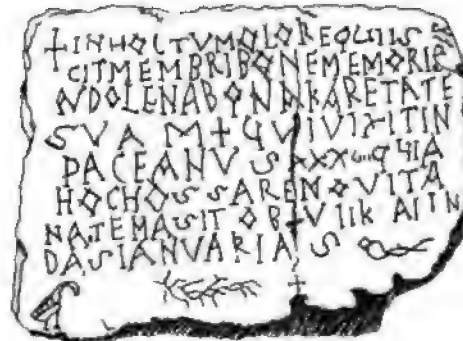 +INHOCTVMOLOREQUIIS
CITMEMBRIBONEMEMORIE
NDOLENABONAKARETATE
SVA VIXITIN
PACEANVS
HOCHOSSAREMOVITA
NATEMASIT
DASIANVARIAS